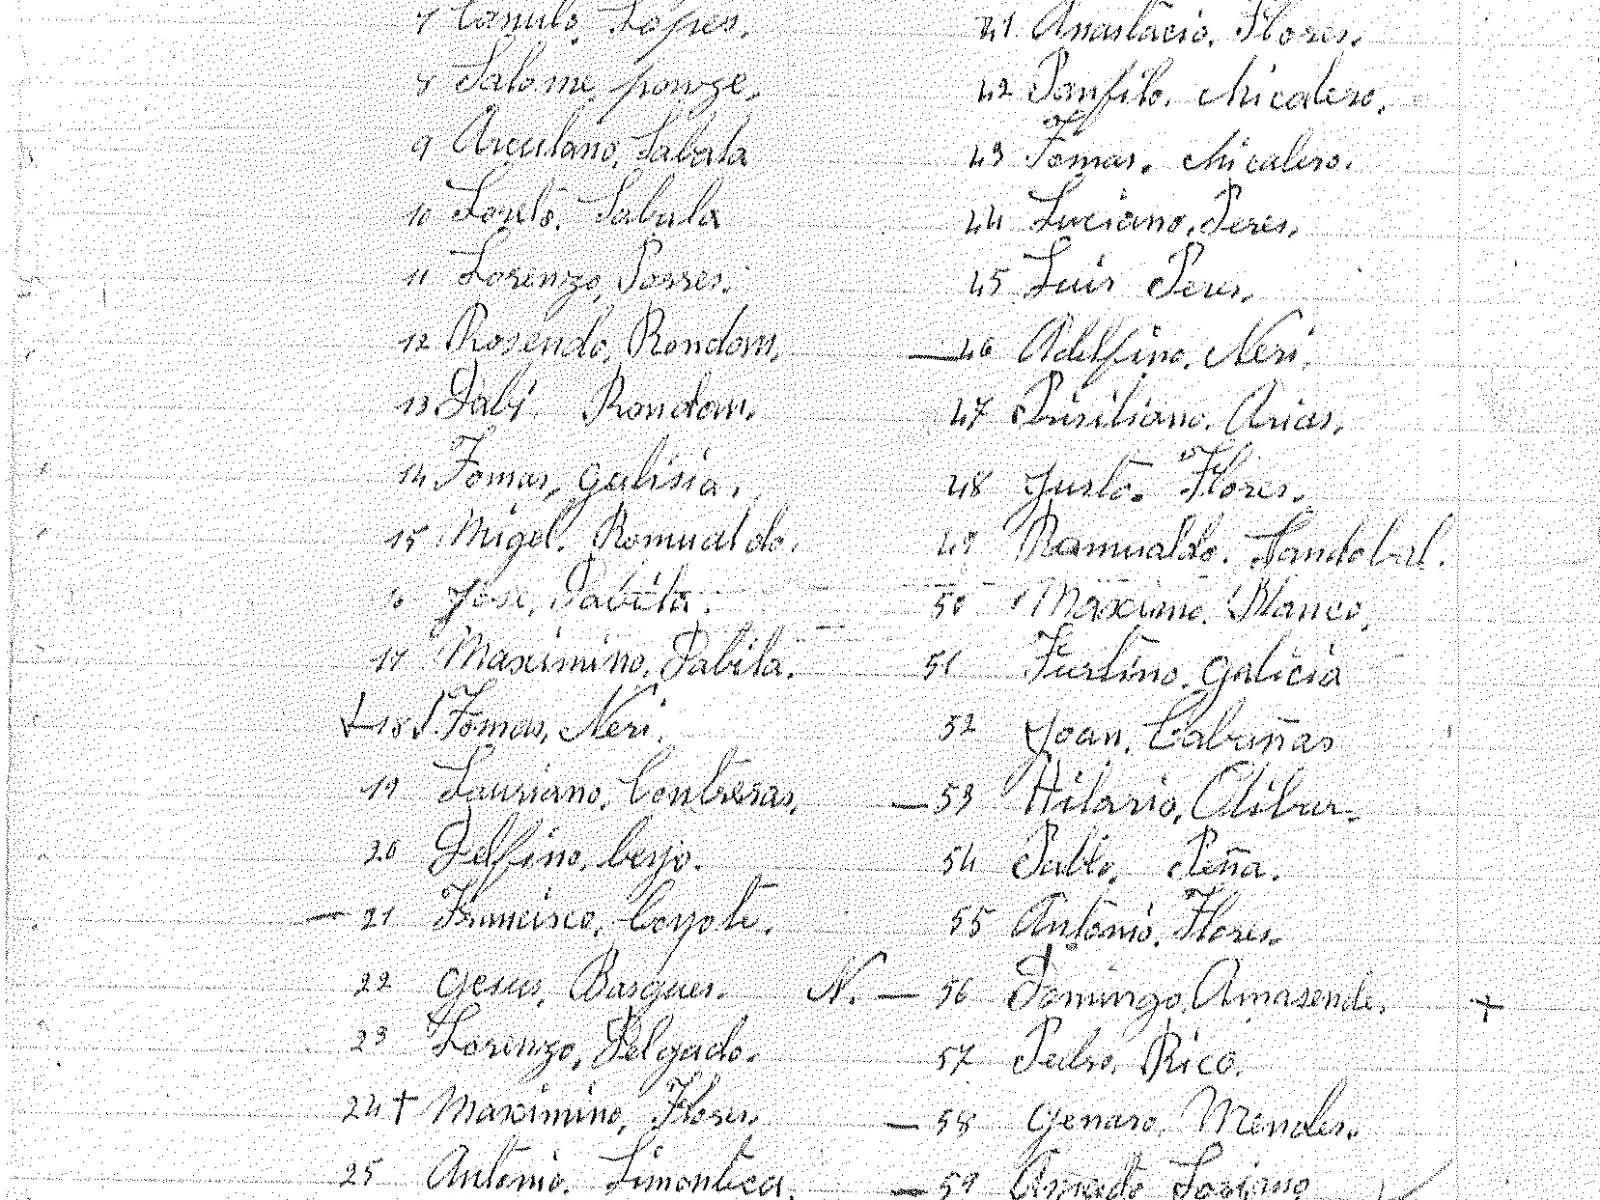 7 Camilo, Lopes.
8 Salome, ponze.
9 Arculano, Sabala
10 Loreto. Sabala
11 Lorenzo, Porres.
12 Rosendo, Rondan.
13 Dabi. Rondan.
14 Tomas, galisia.
15 Migel. Romualdo.
Jose, Dabila.
17 Maximino, Dabila.
18 Tomas, Neri.
19 Lauriano, Contreras,
20 Delfino, Cerjo.
— 21 Francisco, Coyote.
22 gesus, Basques.
23 Lorenzo, Delgado.
24 † Maximino, Flores.
25 Antonio. Limontca.
41 Anastacio. Flores.
42 Panfilo. chicalero.
43 Tomas. chicalero.
44 Luciano, Peres,
45 Luis Peres,
— 46 Adelfino, Neri.
47 Prisiliano. Arias,
48 Justo. Flores.
49 Romualdo. Sandobal.
50 Maximo. Blanco,
51 Fustino. galicia
52 Joan, Cabañas
— 53 Hilario, Olibar.
54 Pablo, Peña.
55 Antonio. Flores.
N. — 56 Domingo, Amasende. +
57 Pedro. Rico.
— 58 genaro. Mendes.
— 59 Amado Soriano